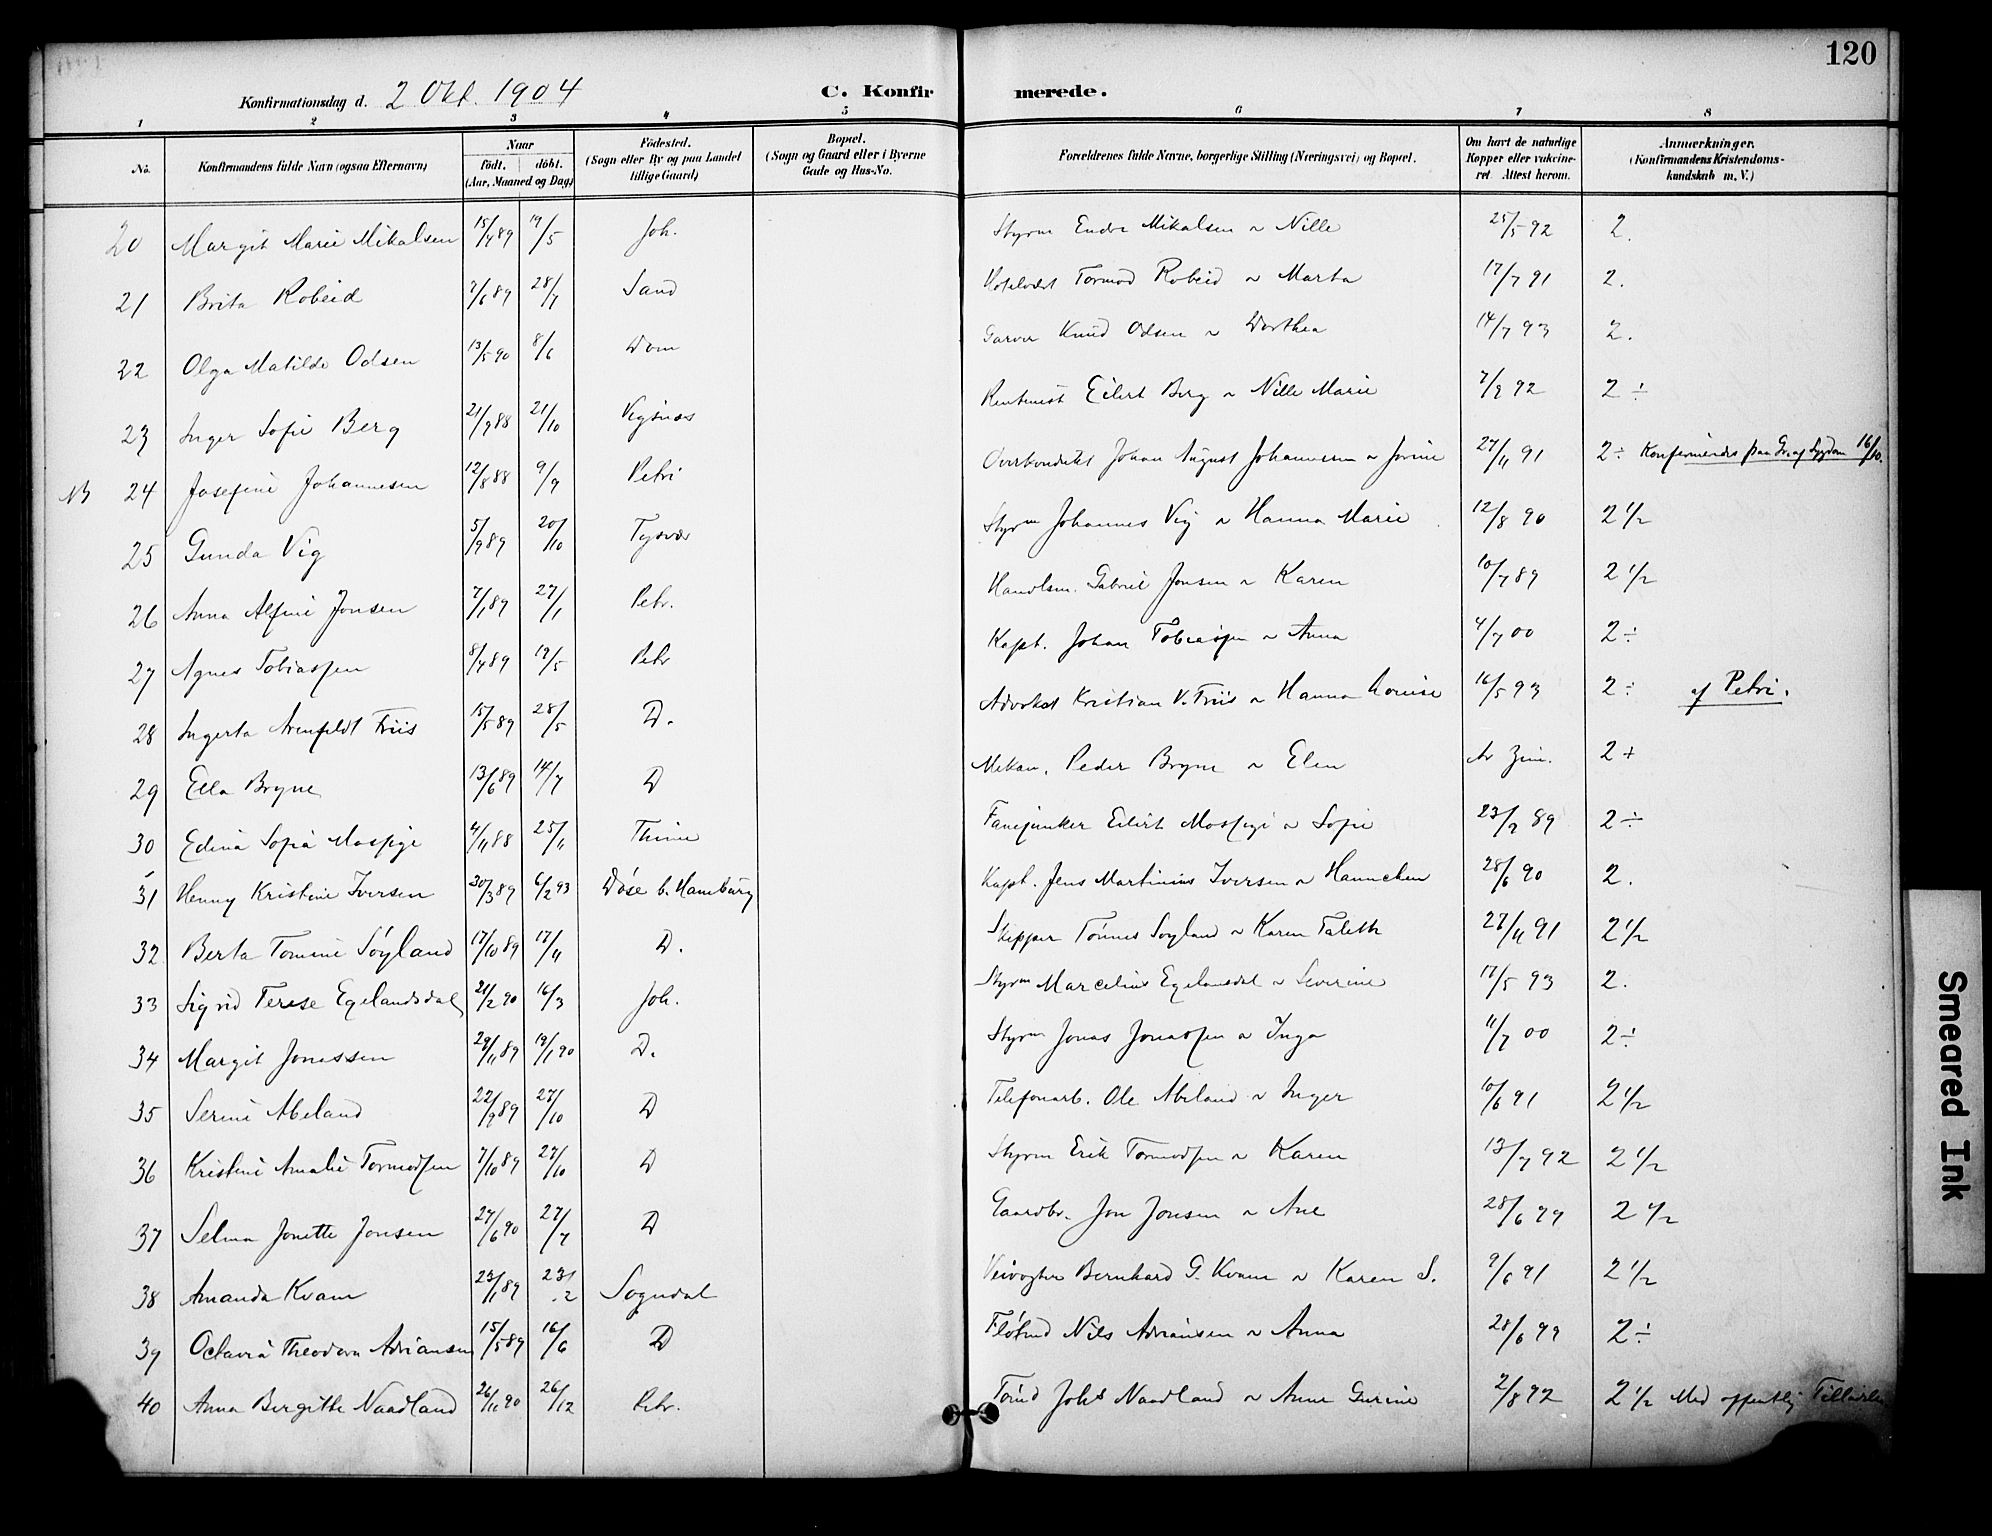 120
Konfirmationsdag d. 2 Okt. 1904 C. Konfirmerede.
1 2 3 4 5 6 7 8
No. Konfirmandens fulde Navn (ogsaa Efternavn) Naar födt. döbt. (Aar, Maaned og Dag) Födested. (Sogn eller By og paa Landet tillige Gaard) Bopæl. (Sogn og Gaard eller i Byerne Gade og Hus-No. Forældrenes fulde Navne, borgerlige Stilling (Næringsvei) og Bopæl. Om havt de naturlige Kopper eller vakcineret. Attest herom. Anmærkninger. (Konfirmandens Kristendomskundskab m. V.)
20 Margit Marie Mikalsen 15/4 89 19/5 Joh. Styrm Endre Mikalsen ~ Nille 25/5 92 2.
21 Brita Robeid 7/6 89 28/7 Sand Tormod Robeid ~ Marta 17/7 91 2.
22 Olga Matilde Odsen 13/5 90 8/6 Dom Garver Knud Odsen ~ Dorthea 14/7 93 2.
23 Inger Sofie Berg 21/9 88 21/10 Vigsnæs Rentenist Eilert Berg ~ Nille Marie 7/9 92 2 ÷
NB 24 Josefine Johannesen 12/8 88 9/9 Petri Johan August Johannesen ~ Jorine 27/11 91 2 ÷ Konfirmeredes paa Gr. af Sygdom 16/10.
25 Gunda Vig 5/9 89 20/10 Tysvær Styrm Johannes Vig ~ Hanna Marie 12/8 90 2 1/2
26 Anna Alfine Jonsen 7/1 89 27/1 Petr. Handlsm. Gabriel Jonsen ~ Karen 10/7 89 2 1/2
27 Agnes Tobiassen 8/4 89 19/5 Petr Kapt. Johan Tobiassen ~ Anna 4/7 00 2 ÷
28 Ingerta Arenfeldt Friis 15/5 89 28/5 D. Advokat Kristian V. Friis ~ Hanna Louise 16/5 93 2 ÷ af Petri.
29 Ella Bryne 13/6 89 14/7 D Mekan. Peder Bryne ~ Elen 2 +
30 Edina Sofia Mossige 4/11 88 25/11 Thime Fanejunker Eilert Mossige ~ Sofie 23/9 89 2 ÷
31 Henny Kristine Iversen 30/3 89 6/2 93 Döse b. Hamburg Kapt. Jens Martinius Iversen ~ Hannchen 28/6 90 2.
32 Berta Tomine Söyland 17/10 89 17/11 D. Skipper Tönnes Söyland ~ Karen Taleth 27/11 91 2 1/2
33 Sigrid Terese Egelandsdal 21/2 90 16/3 Joh. Styrm Marcelius Egelandsdal ~ Severine 17/5 93 2.
34 Margit Jonassen 29/11 89 19/1 90 D. Styrm Jonas Jonassen ~ Inga 11/7 00 2 ÷
35 Serine Abeland 22/9 89 27/10 D Telefonarb. Ole Abeland ~ Inger 10/6 91 2 1/2
36 Kristine Amalie Tormodsen 7/10 89 27/10 D Styrm Erik Tormodsen ~ Karen 13/7 92 2 1/2
37 Selma Jonette Jonsen 27/6 90 27/7 D Gaardbr. Jon Jonsen ~ Ane 28/6 99 2 1/2
38 Amanda Kvam 23/1 89 23/2 Sogndal Veivogter Bernhard G. Kvam ~ Karen S. 9/6 91 2 1/2
39 Octavia Theodora Adriansen 15/5 89 16/6 D Nils Adriansen ~ Anna 28/6 99 2 ÷
40 Anna Bergitte Naadland 26/11 90 26/12 Petr. Johs Naadland ~ Anne Gurine 2/8 92 2 1/2 Med offentlig
Smeared Ink